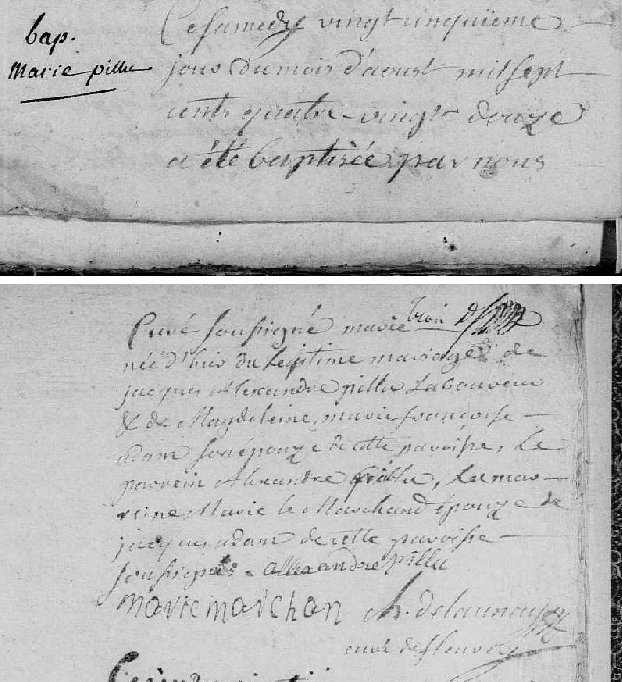 bap.
Marie pillu
Ce samedy vingt cinquiieme
jour du mois d'aoust mil sept
cents quatre-vingt douze
a été baptisée par nous
Curé soussigné marie
née d'hier du legitime mariage de
jacques Alexandre pillu Laboureur
& de Magdeleine, marie françoise
adam son épouze de cette paroisse, Le
parrein Alexandre pillu, La mar-
reine Marie le Marchand épouze de
jacques adam de cette paroisse
soussignés. alexandre Pillu
marie marchan ch. delaunay
curé de